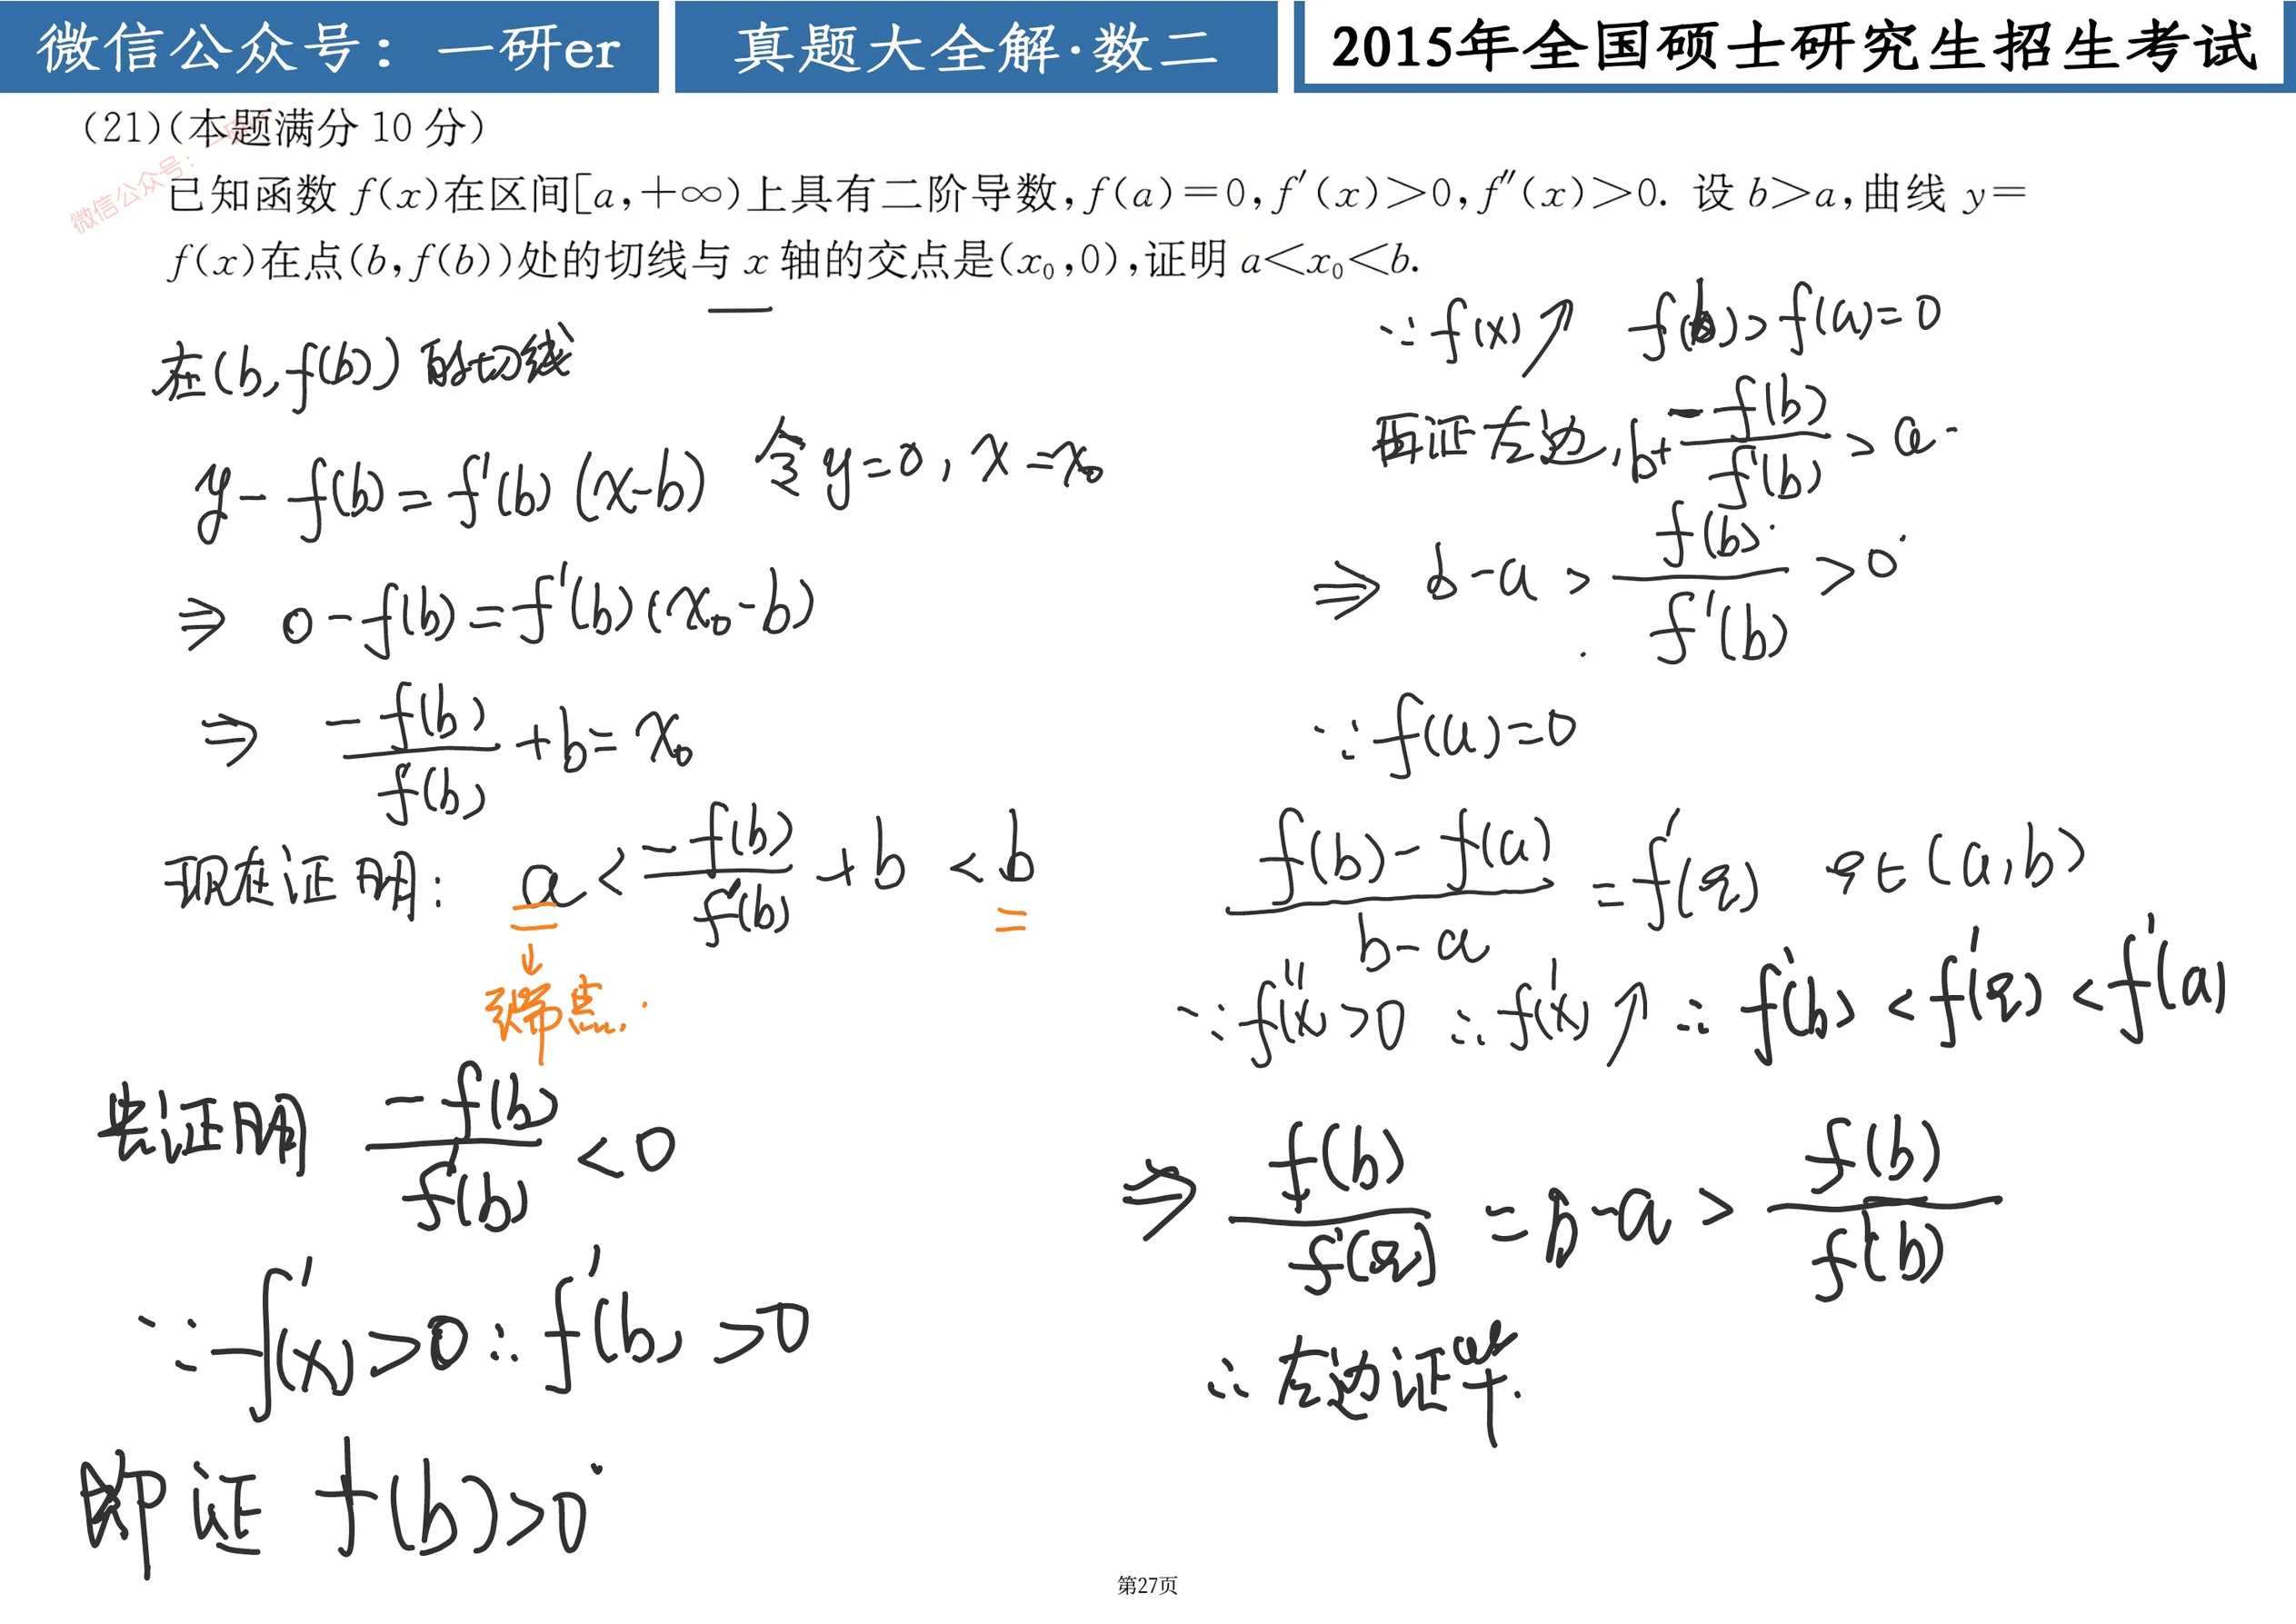 微信公众号：一研er
真题大全解·数二
2015年全国硕士研究生招生考试
(21)(本题满分 10 分)
微信公众号：一研er
已知函数 f(x)在区间[a,+∞)上具有二阶导数,f(a)=0,f′(x)>0,f″(x)>0. 设 b>a,曲线 y=
f(x)在点(b,f(b))处的切线与 x 轴的交点是(x₀,0),证明 a<x₀<b.
在(b,f(b))的切线
y-f(b)=f'(b)(x-b) 令y=0, x=x₀
⇒ 0-f(b)=f'(b)(x₀-b)
⇒ -f(b)/f'(b) +b=x₀
现在证明: a < -f(b)/f'(b) +b < b
↓
端点.
先证明 -f(b)/f'(b) <0
∵f'(x)>0 ∴f'(b)>0
即证 f(b)>0
∵f(x)↗ f(b)>f(a)=0
再证左边, b+ -f(b)/f'(b) > a
⇒ b-a > f(b)/f'(b) >0
∵f(a)=0
f(b)-f(a)/b-a =f'(ξ) ξ∈(a,b)
∵f''(x)>0 ∴f'(x)↗ ∴f'(b)<f'(ξ)<f'(a)
⇒ f(b)/f'(ξ) =b-a> f(b)/f'(b)
∴左边证毕.
第27页